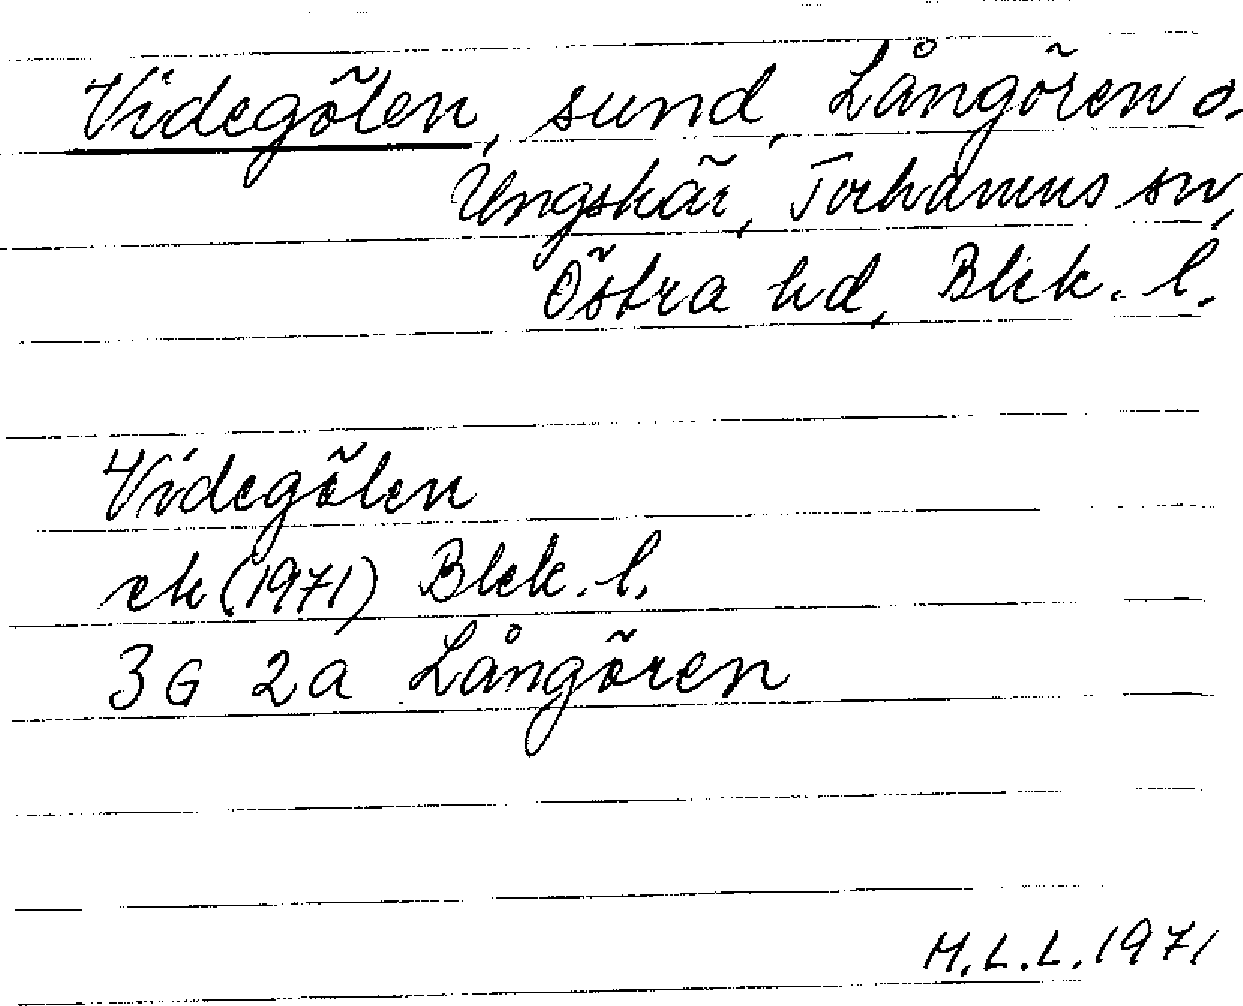 Videgölen, sund, Långören o.
Ungskär, Torhamns sn,
Östra hd, Blek. l.
Videgölen
ek (1971) Blek. l.
3G 2a Långören
H.L.L. 1971